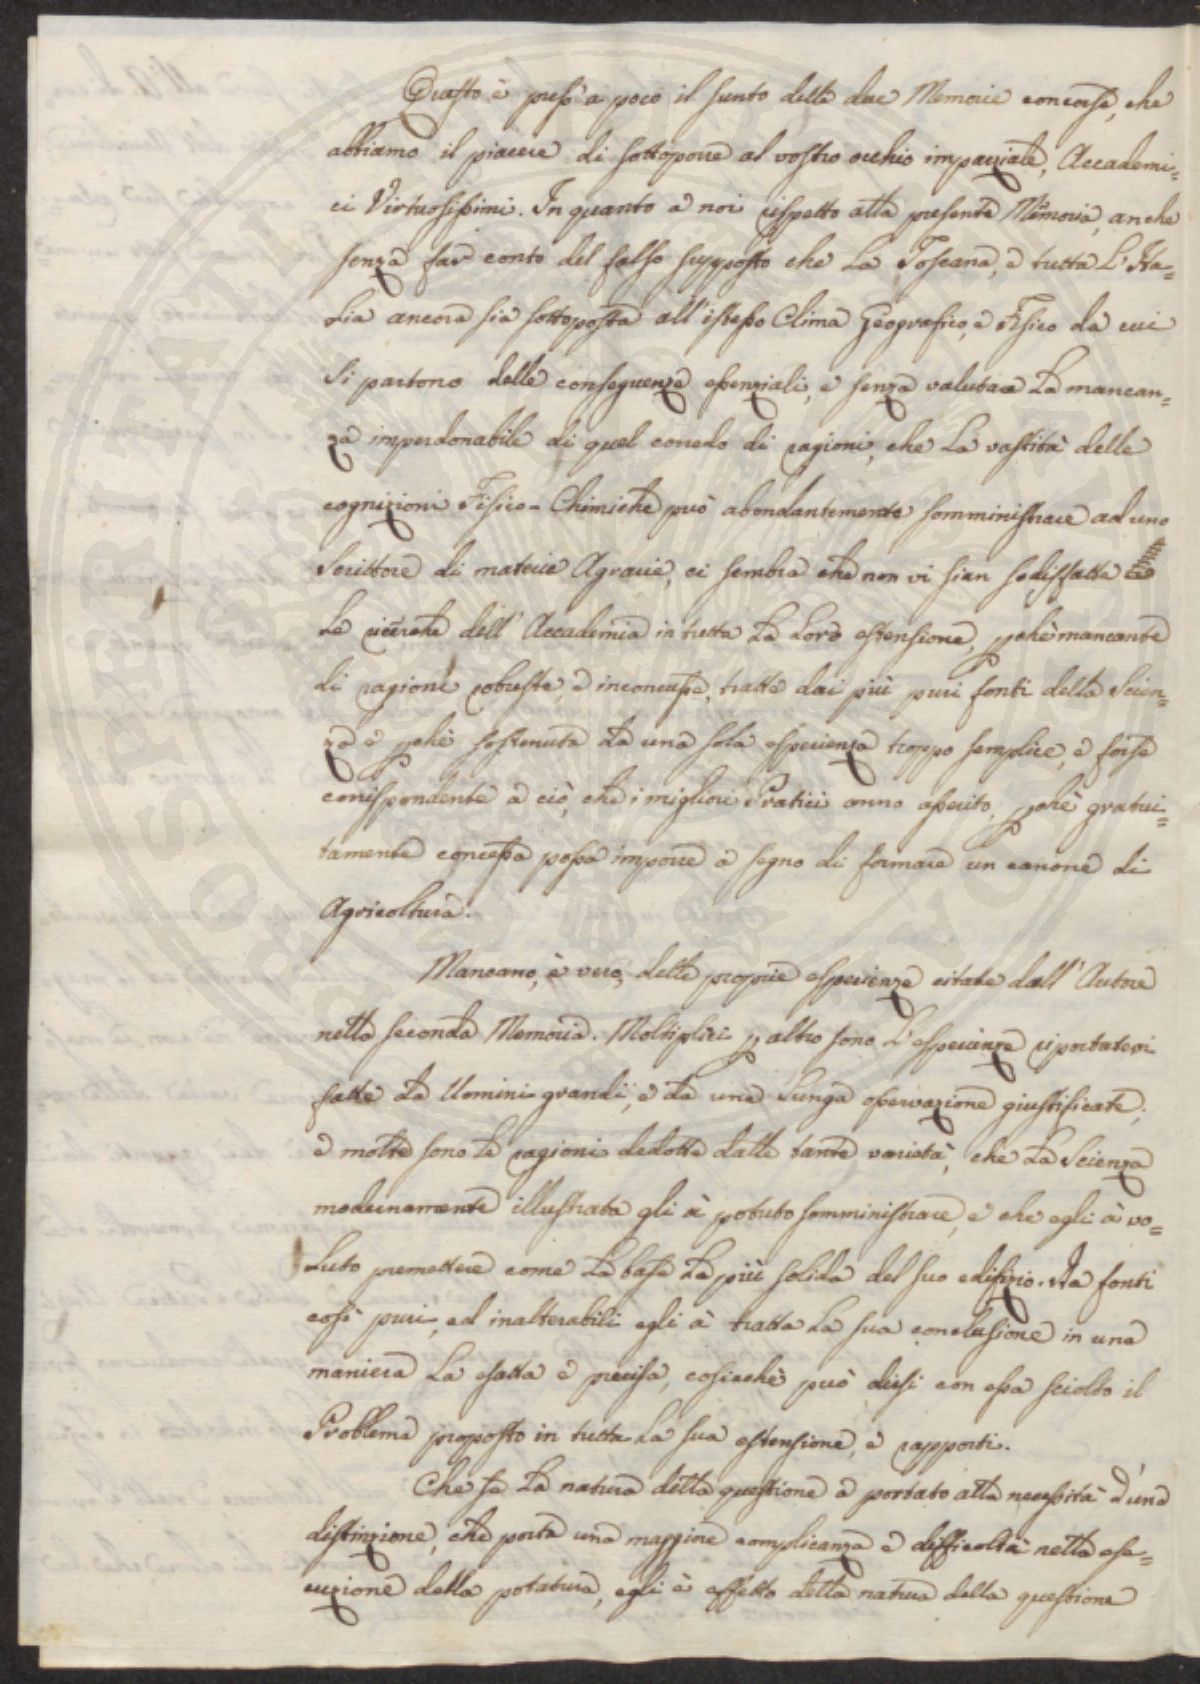 Questo è press'a poco il sunto delle due Memorie concorse, che
abbiamo il piacere di sottoporre al vostro occhio imparziale, Accademi=
ci Virtuosissimi. In quanto a noi rispetto alla presente Memoria, anche
senza far conto del falso supposto che la Toscana, e tutta l'Ita=
lia ancora sia sottoposta all'istesso Clima Geografico, e Fisico da cui
si partono delle conseguenze essenziali, e senza valutare la mancan=
za imperdonabile di quel corredo di ragioni, che la vastità delle
cognizioni Fisico-Chimiche può abondantemente somministrare ad uno
Scrittore di materie Agrarie, ci sembra che non vi sian sodisfatte
le ricerche dell'Accademia in tutta la loro estensione, pchè mancante
di ragioni robuste, e inconcusse, tratte dai più puri fonti della Scien=
za e pchè sostenuta da una sola esperienza troppo semplice, e forse
corrispondente a ciò, che i migliori Pratici anno asserito, pchè gratui=
tamente concessa possa imporre a segno di formare un canone di
Agricoltura.
Mancano, è vero, delle proprie esperienze citate dall'Autore
nella seconda Memoria. Moltiplici p altro sono l'esperienze riportatevi
fatte da Uomini grandi, e da una lunga osservazione giustificate;
e molte sono le ragioni dedotte dalle tante varietà, che la Scienza
modernamente illustrata gli à potuto somministrare, e che egli à vo=
luto premettere come la base la più solida del suo edifizio. Da fonti
così puri, ed inalterabili egli à tratta la sua conclusione in una
maniera la esatta e precisa, cosicchè può dirsi con essa sciolto il
Problema proposto in tutta la sua estensione, e rapporti.
Che se la natura della questione à portato alla necessità d'una
distinzione, che porta una maggiore complicanza e difficoltà nella ese=
cuzione della potatura, egli è effetto della natura della questione